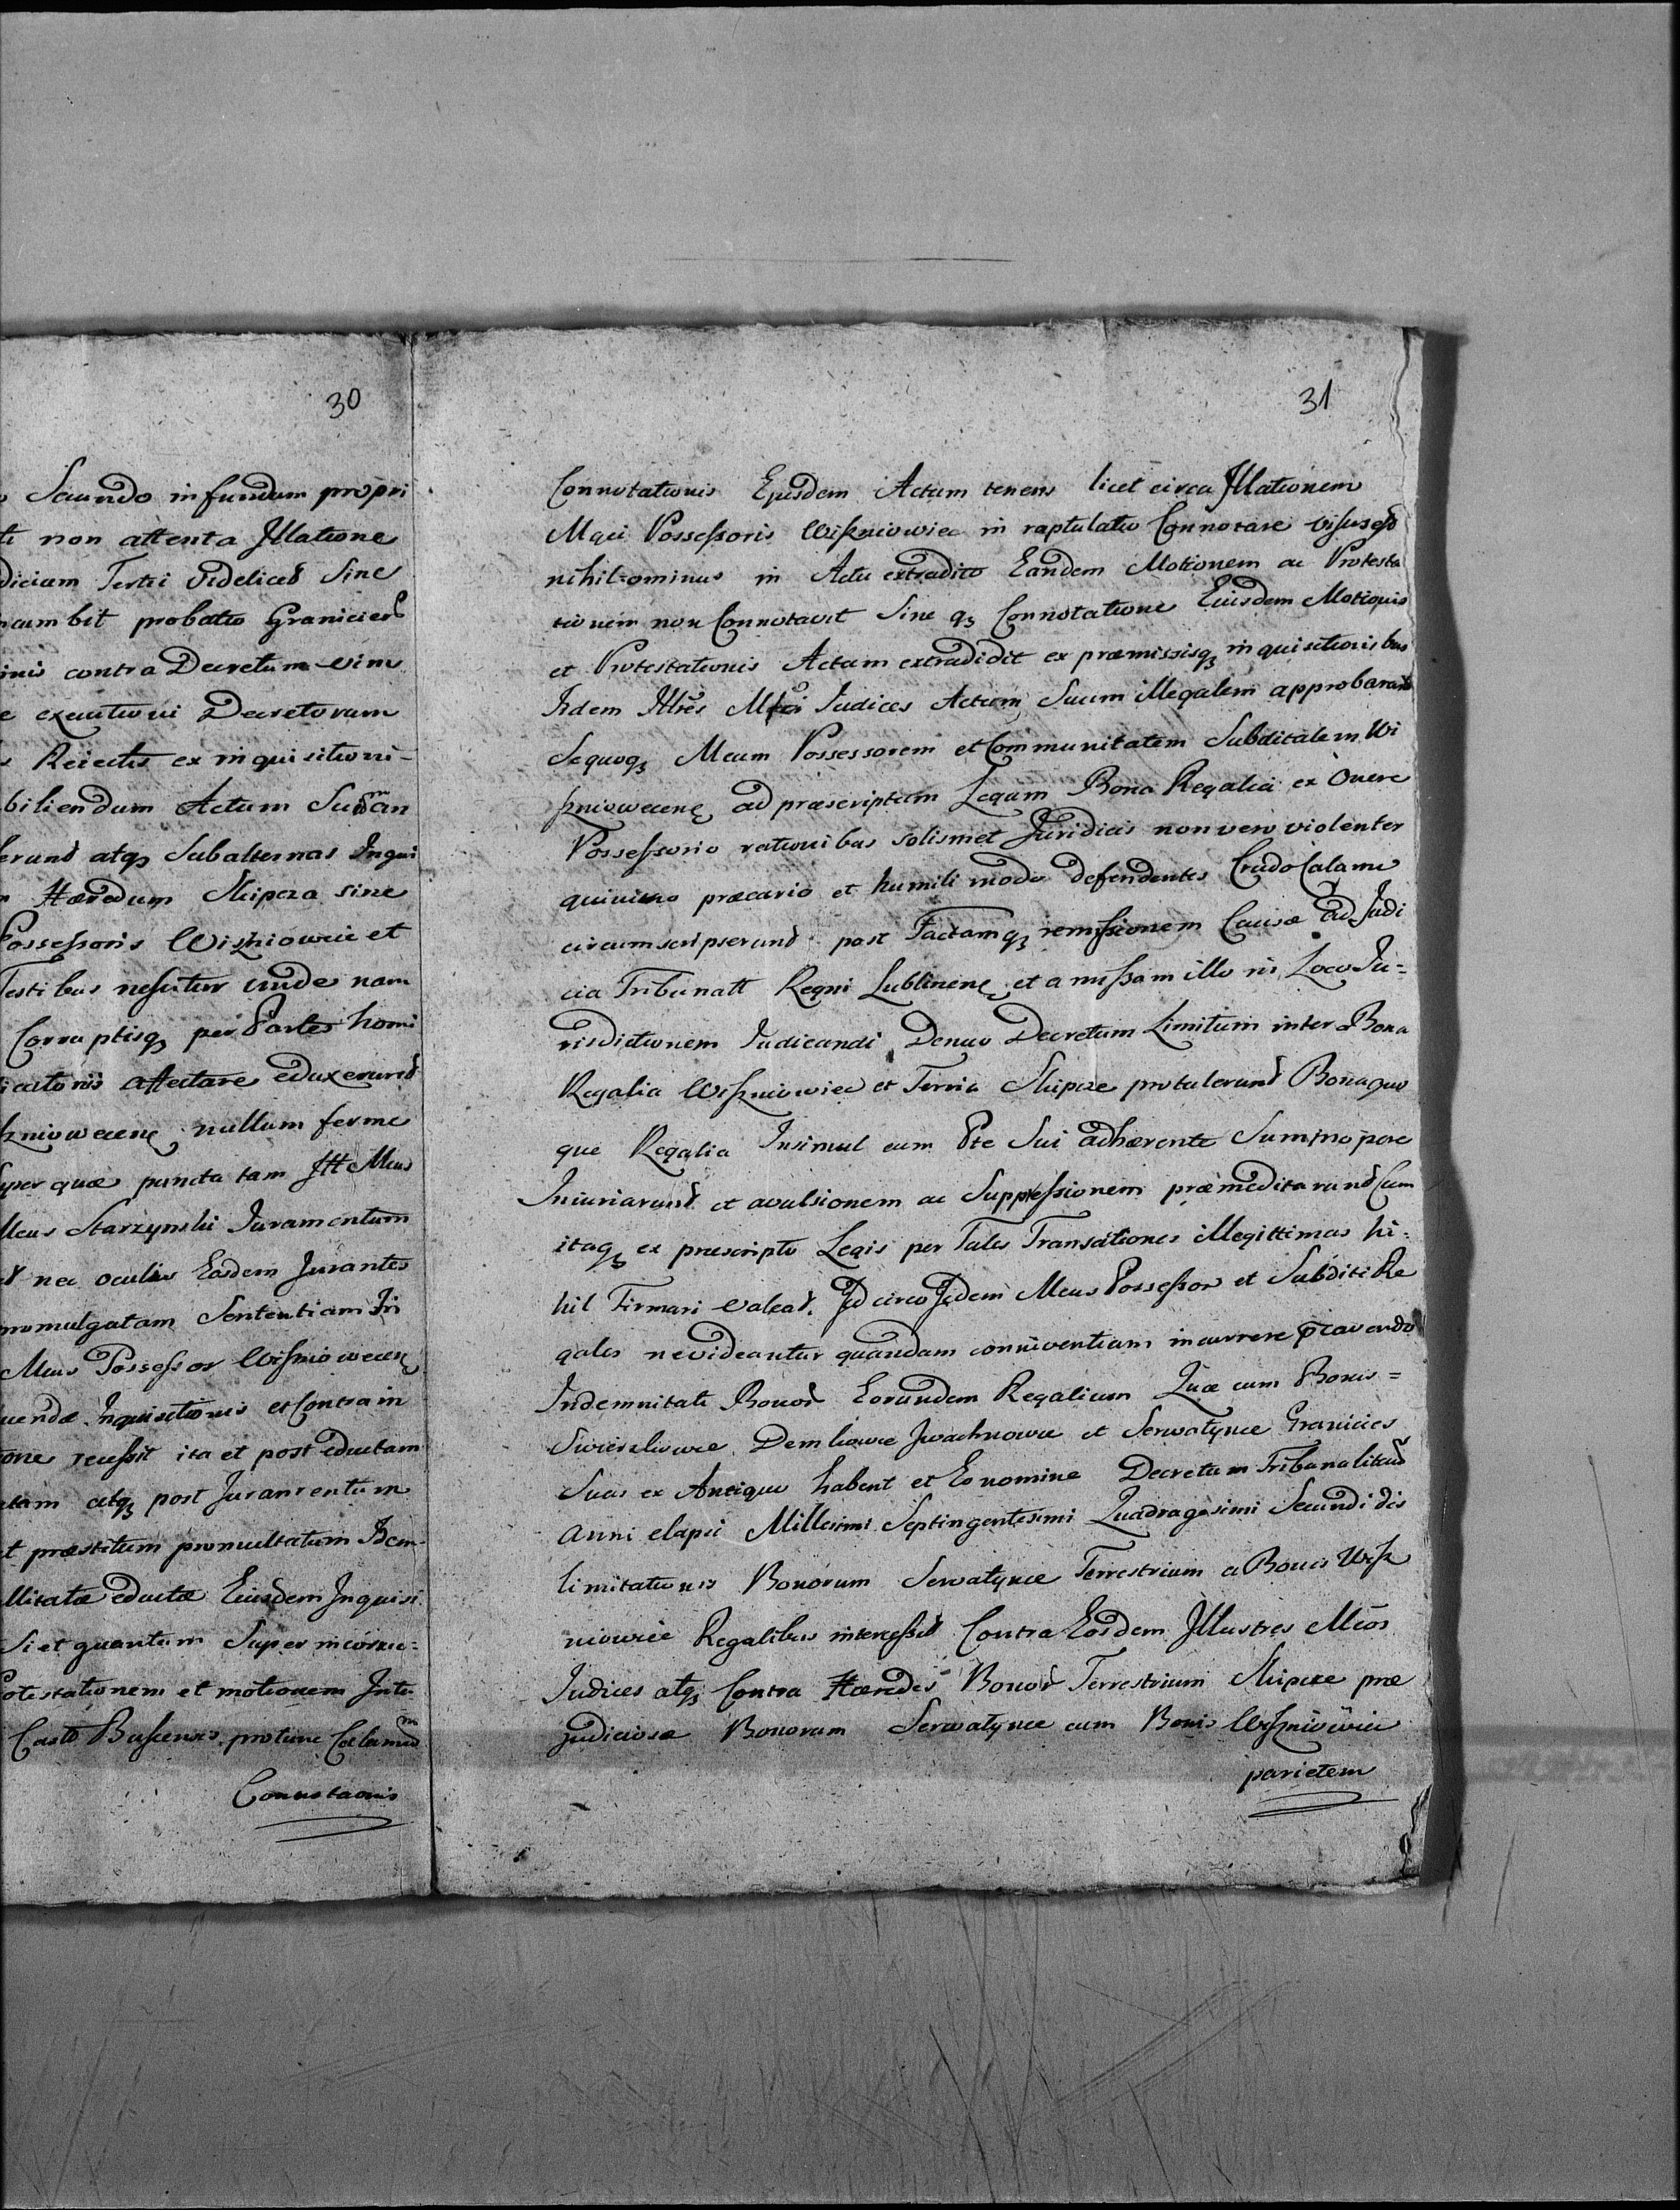 30
Secundo in fundum propri
ti non attenta Illatione
dicium Tertii videlicet Sine
ncumbit probatio Granicier
inis contra Decretum vim
e executioni Decretorum
Reiectis ex inquisitioni-
biliendum Actum Suum an
erund atqȝ Subalternas Inqui
Hæredum Slipcza sine
Possessoris Wiszniowice et
Testibus nescitur unde nam
Corruptisqȝ per Partes homi
icatonis affectare eduxerund
szniowecenę nullum ferme
syper quæ puncta tam Ill Mcus
Mcus Starzynski Juramentum
d nec oculis Eosdem Jurantes
romulgatam Sententiam In
Mcus Possessor Wiszniowecenę
uendæ Inquisitionis et Contra in
one recessit ita et post eductam
atam atqȝ post Juramentum
t præstitum promultatum Iden-
llitatæ eductæ Eiusdem Inquisi
Si et quantum Super incorue=
Protestationem et motionem Inte
Castr Buscensis protunc Calamum
Connotaonis
31
Connotationis Ejusdem Actum tenens licet circa Illationem
Mgci Possessoris Wiszniowiec in raptulatu Connotare visus est
nihilominus in Actu extradito Eandem Motionem ac Protesta
tionem non Connotavit Sine qȝ Connotatione Eiusdem Motionis
et Protestationis Actum extradidit ex præmissisqȝ inquisitionibus
Iidem Illres Mfci Judices Actum Suum illegalem approbarunt
Sequoqȝ Mcum Possessorem et Communitatem Subditalem Wi
szniowecenę ad præscriptum Legum Bona Regalia ex Onere
Possessorio rationibus solismet Juridicis non vero violenter
quinimo præcario et humili modo defendentes Crudo Calamo
circumscripserund post Factamqȝ remissionem Causæ ad Judi
cia Tribunatt Regni Lublinenę et amissam illo in Loco Ju=
risdictionem Judicandi Denuo Decretum Limitum inter Bona
Regalia Wiszniowiec et Terria Slipcze protulerund Bonaquo
que Regalia Insimul cum Pte Sui adhærente Summopere
Iniuriarund et avulsionem ac Suppressionem præmeditarund Cum
itaqȝ ex præscripto Legis per Tales Transactiones illegittimas hi=
hil Firmari valeat. Id circo Iidem Mcus Possessor et Subditi Re
gales ne videantur quandam conniventiam incurrere præcavendo
Indemnitati Bonor Eorundem Regalium Quæ cum Bonis=
Swierzkowce Demkowce Jwachnowce et Serwatynce Granicies
Suas ex Antiquo habent et Eo nomine Decretum Tribunalitium
anni elapsi Millesimi Septingentesimi Quadragesimi Secundi dis
limitationis Bonorum Serwatynce Terrestrium a Bonis Wisz
niowiec Regalibus intercessit Contra Eosdem Illustres Mcos
Judices atqȝ Contra Hæredes Bonor Terrestrium Slipcze præ
judiciosæ Bonorum Serwatynce cum Bonis Wiszniowiec
parietem